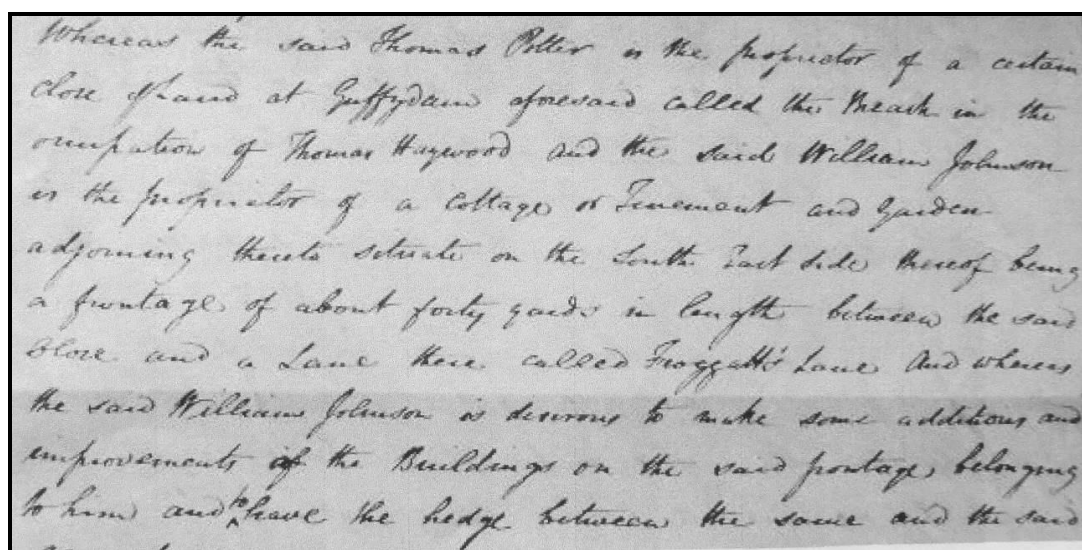 Whereas the said Thomas Potter is the proprietor of a certain
close of land at Guffydam aforesaid called the Breach in the
occupation of Thomas Haywood and the said William Johnson
is the proprietor of a Cottage or Tenement and Garden
adjoining thereto situate on the South East side thereof being
a frontage of about forty yards in length between the said
Close and a Lane there called Froggatt's Lane And whereas
the said William Johnson is desirous to make some additions and
improvements of the Buildings on the said frontage belonging
to him and to have the hedge between the same and the said